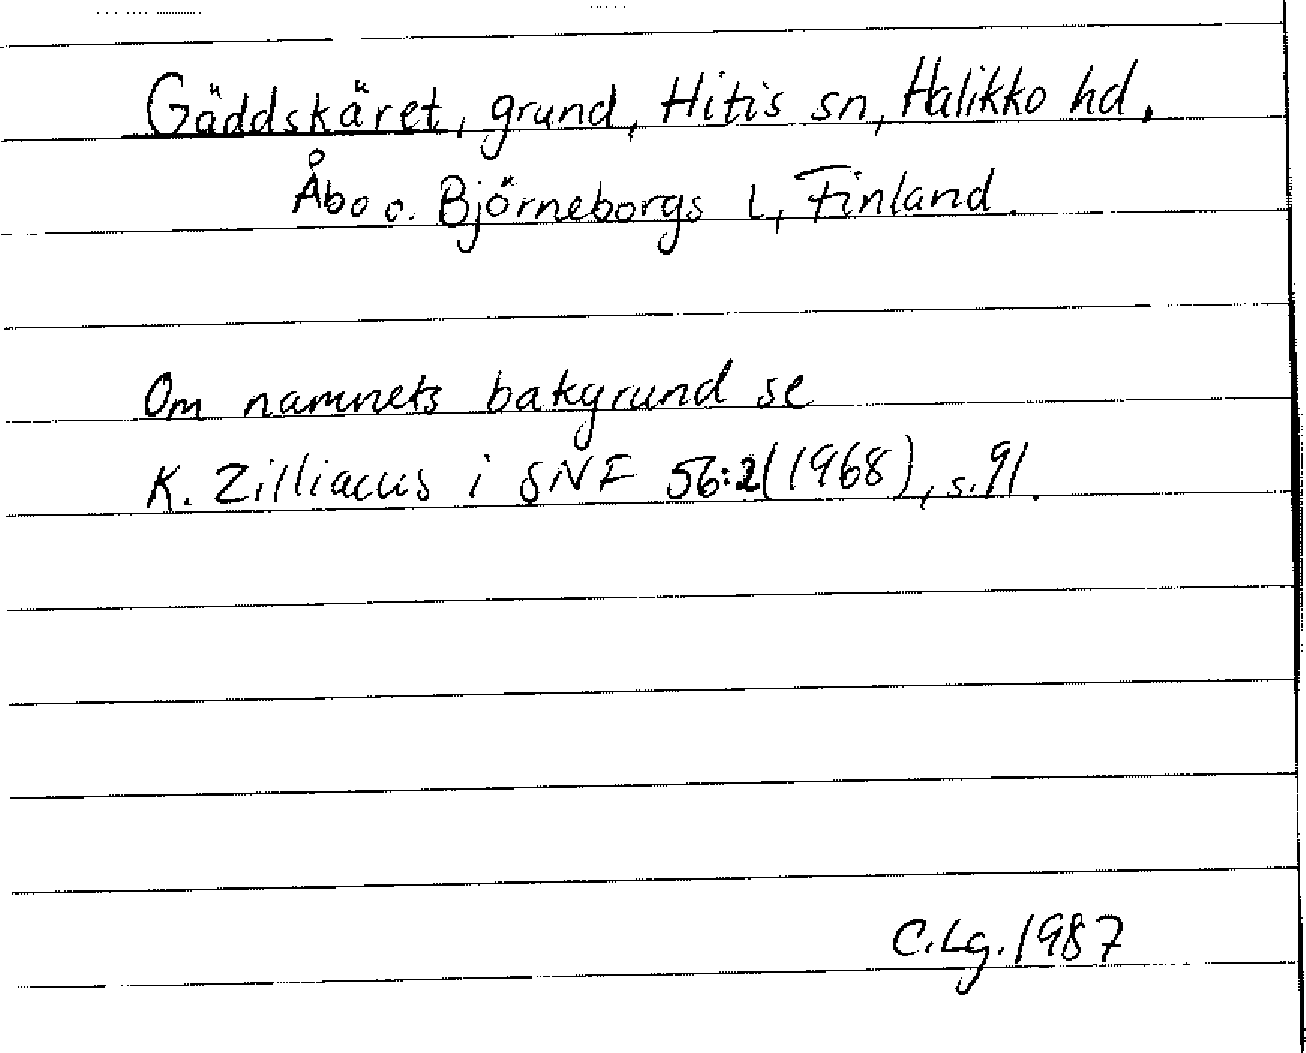 Gäddskäret, grund, Hitis sn, Halikko hd,
Åbo o. Björneborgs l, Finland.
Om namnets bakgrund se
K. Zilliacus i SNF 56:2(1968), s. 91.
C.Lg. 1987